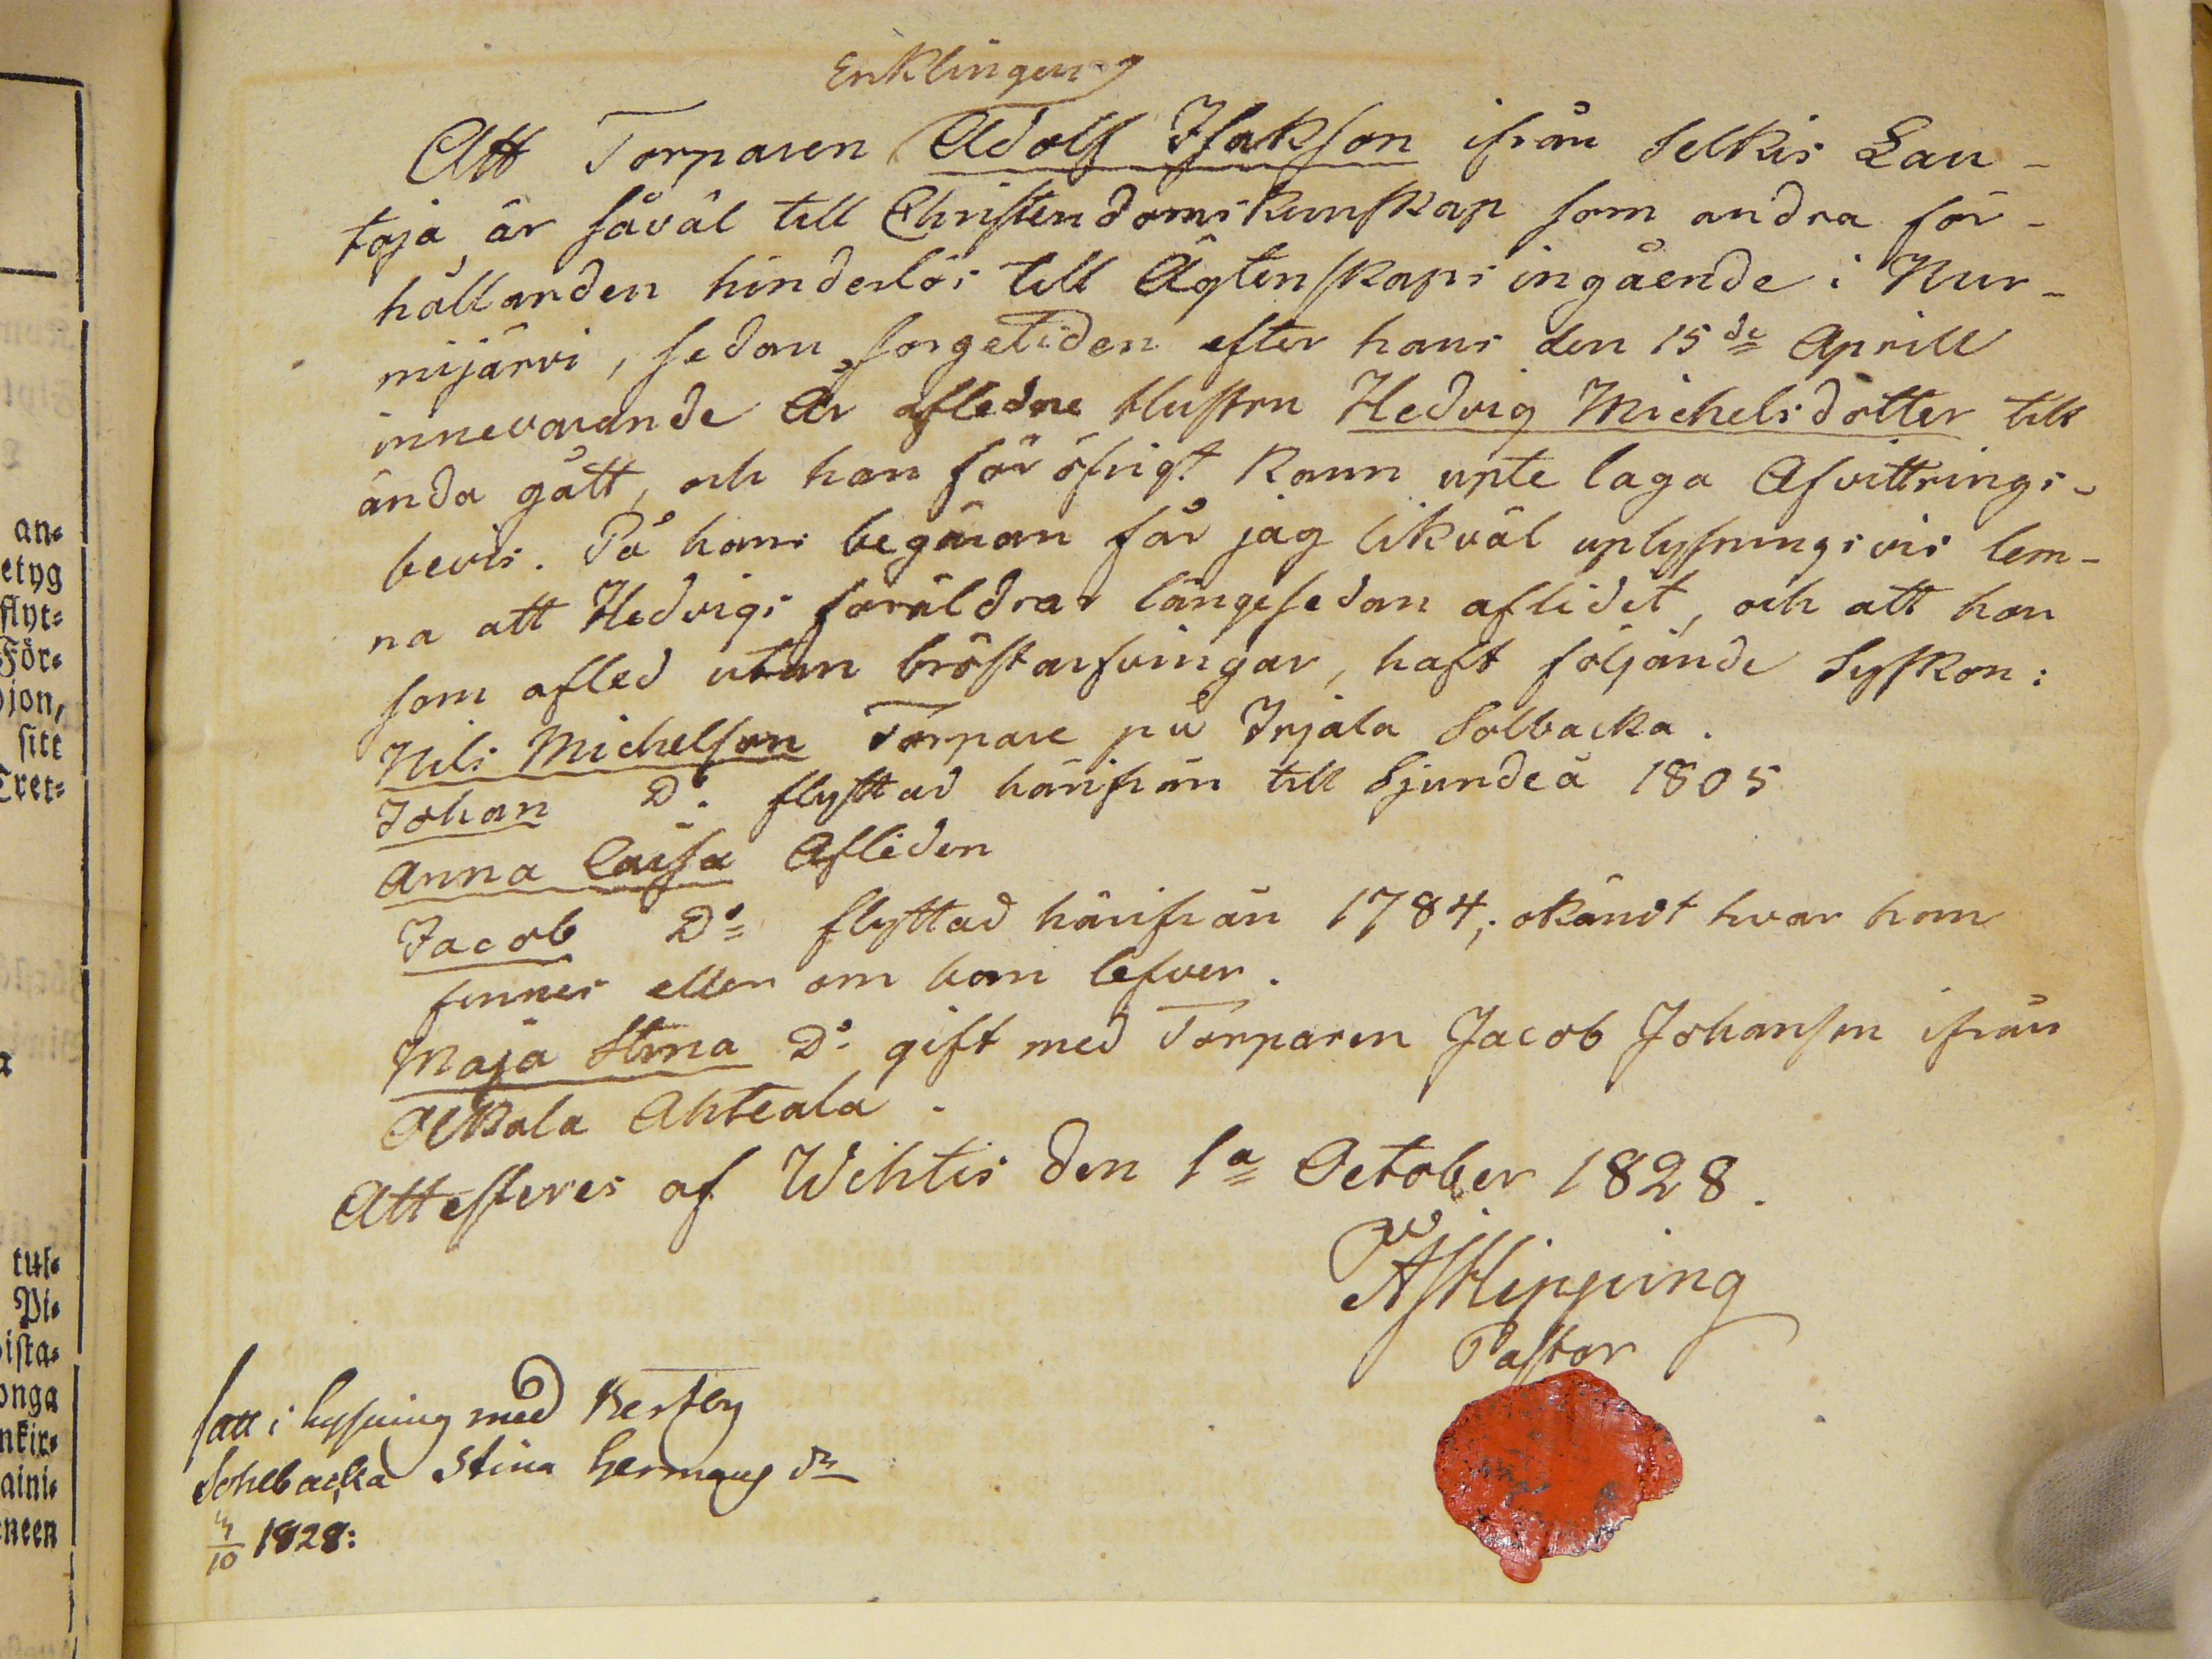 Enklingen
Att Torparen Adolf Isakson ifrån Selkis Lau-
toja, är såväl till Christendomskunskap som andra för-
hållanden hinderlös till Ägtenskaps ingående i Nur-
mijärvi, sedan sorgetiden efter hans den 15de Aprill
innevarande År afledne Hustru Hedvig Michelsdotter till
ända gått, och han för öfrigt kann upte laga Afvittrings-
bevis. På hans begäran får jag likväl uplysningsvis lem-
na att Hedvigs föräldrar längesedan aflidit, och att hon
som afled utan bröstarfvingar, haft följande Syskon:
Nils Michelson Torpare på Irjala Solbacka.
Johan Do. flyttad härifrån till Sjundeå 1805
Anna Caisa Afliden
Jacob Do flyttad härifrån 1784; okändt hvar han
finnes eller om han lefver.
Maja Stina Do gift med Torparen Jacob Johanson ifrån
Olkala Ahteala.
Attesteres af Wihtis den 1a October 1828.
Hipping
Pastor
satt i lysning med
Stina Hermans dr
10 1828:
an=
etyg
flyt=
För=
jon,
sitt
Tret=
tul=
Pi=
ista=
onga
nkir=
aini=
neen